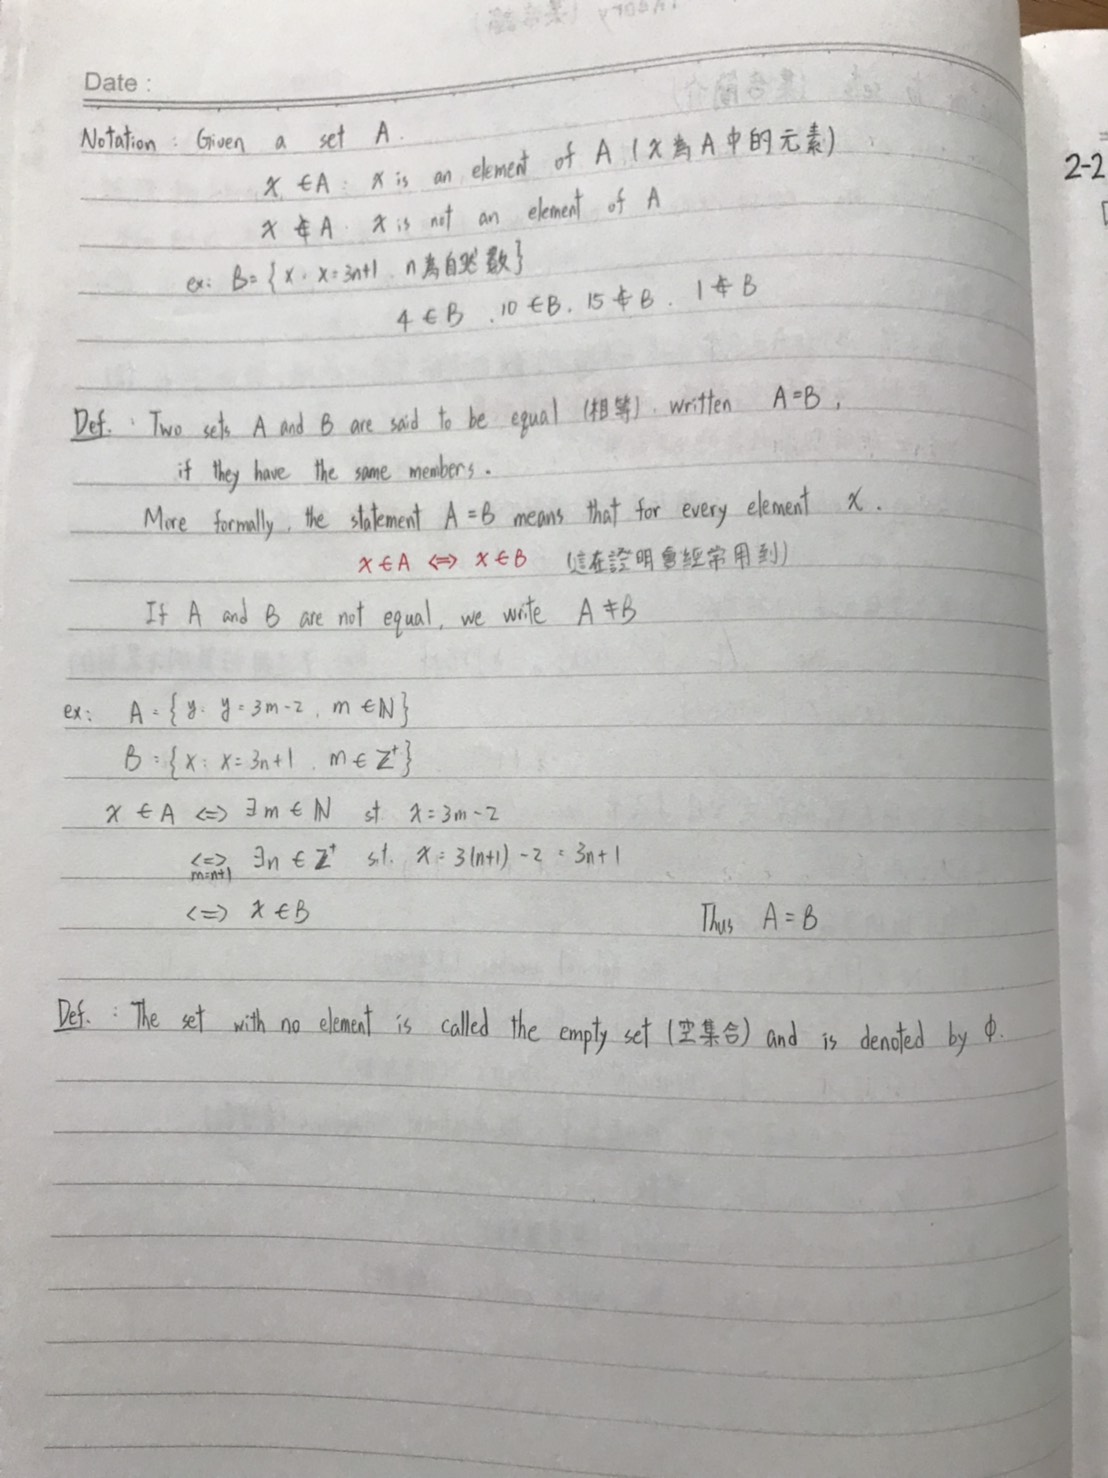 Date :
Notation : Given a set A.
x ∈ A : x is an element of A (x為A中的元素)
x ∉ A . x is not an element of A
ex: B = {x : x = 3n+1 , n為自然數}
4 ∈ B , 10 ∈ B , 15 ∉ B , 1 ∉ B
Def. : Two sets A and B are said to be equal (相等) , written A = B ,
if they have the same members .
More formally , the statement A = B means that for every element x .
x ∈ A ⇔ x ∈ B (這在證明會經常用到)
If A and B are not equal , we write A ≠ B
ex: A = {y : y = 3m-2 , m ∈ ℕ}
B = {x : x = 3n+1 , m ∈ ℤ⁺}
x ∈ A ⇔ ∃m ∈ ℕ st x = 3m-2
⇔ ∃n ∈ ℤ⁺ s.t. x = 3(n+1) - 2 = 3n+1
m=n+1
⇔ x ∈ B Thus A = B
Def. : The set with no element is called the empty set (空集合) and is denoted by ϕ.
2-2